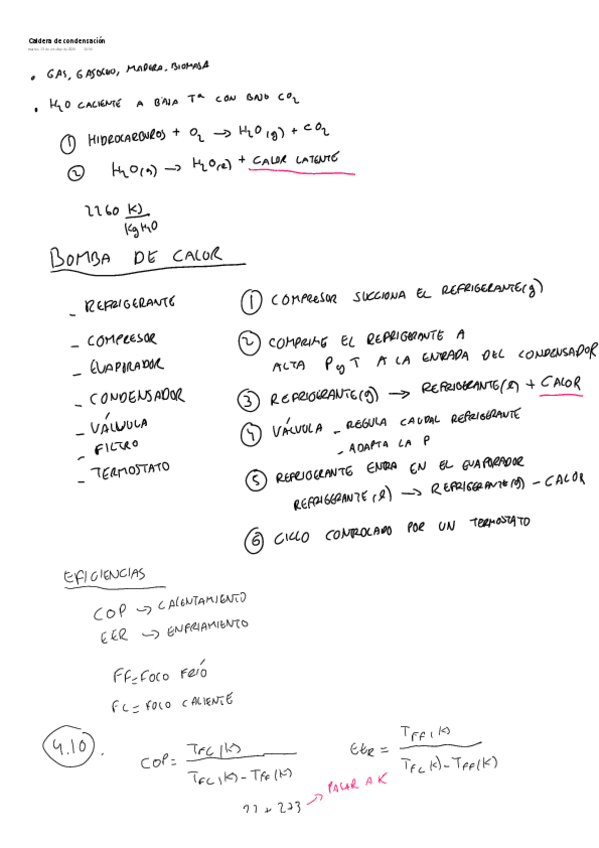 Caldera de condensación
• GAS, GASOLEO, MADERA, BIOMASA
• H2O CALIENTE A BAJA Tª CON BAJO CO2
① HIDROCARBUROS + O2 → H2O(g) + CO2
② H2O(g) → H2O(l) + CALOR LATENTE
2260 KJ
KgH2O
BOMBA DE CALOR
- REFRIGERANTE
- COMPRESOR
- EVAPORADOR
- CONDENSADOR
- VÁLVULA
- FILTRO
- TERMOSTATO
① COMPRESOR SUCCIONA EL REFRIGERANTE(g)
② COMPRIME EL REFRIGERANTE A
ALTA P y T A LA ENTRADA DEL CONDENSADOR
③ REFRIGERANTE(g) → REFRIGERANTE(l) + CALOR
④ VÁLVULA - REGULA CAUDAL REFRIGERANTE
- ADAPTA LA P
⑤ REFRIGERANTE ENTRA EN EL EVAPORADOR
REFRIGERANTE(l) → REFRIGERANTE(g) - CALOR
⑥ CICLO CONTROLADO POR UN TERMOSTATO
EFICIENCIAS
COP → CALENTAMIENTO
EER → ENFRIAMIENTO
FF = FOCO FRÍO
FC = FOCO CALIENTE
4.10.
COP = TFC(K) / TFC(K) - TFF(K)
EER = TFF(K) / TFC(K) - TFF(K)
22 + 273 → PASAR A K